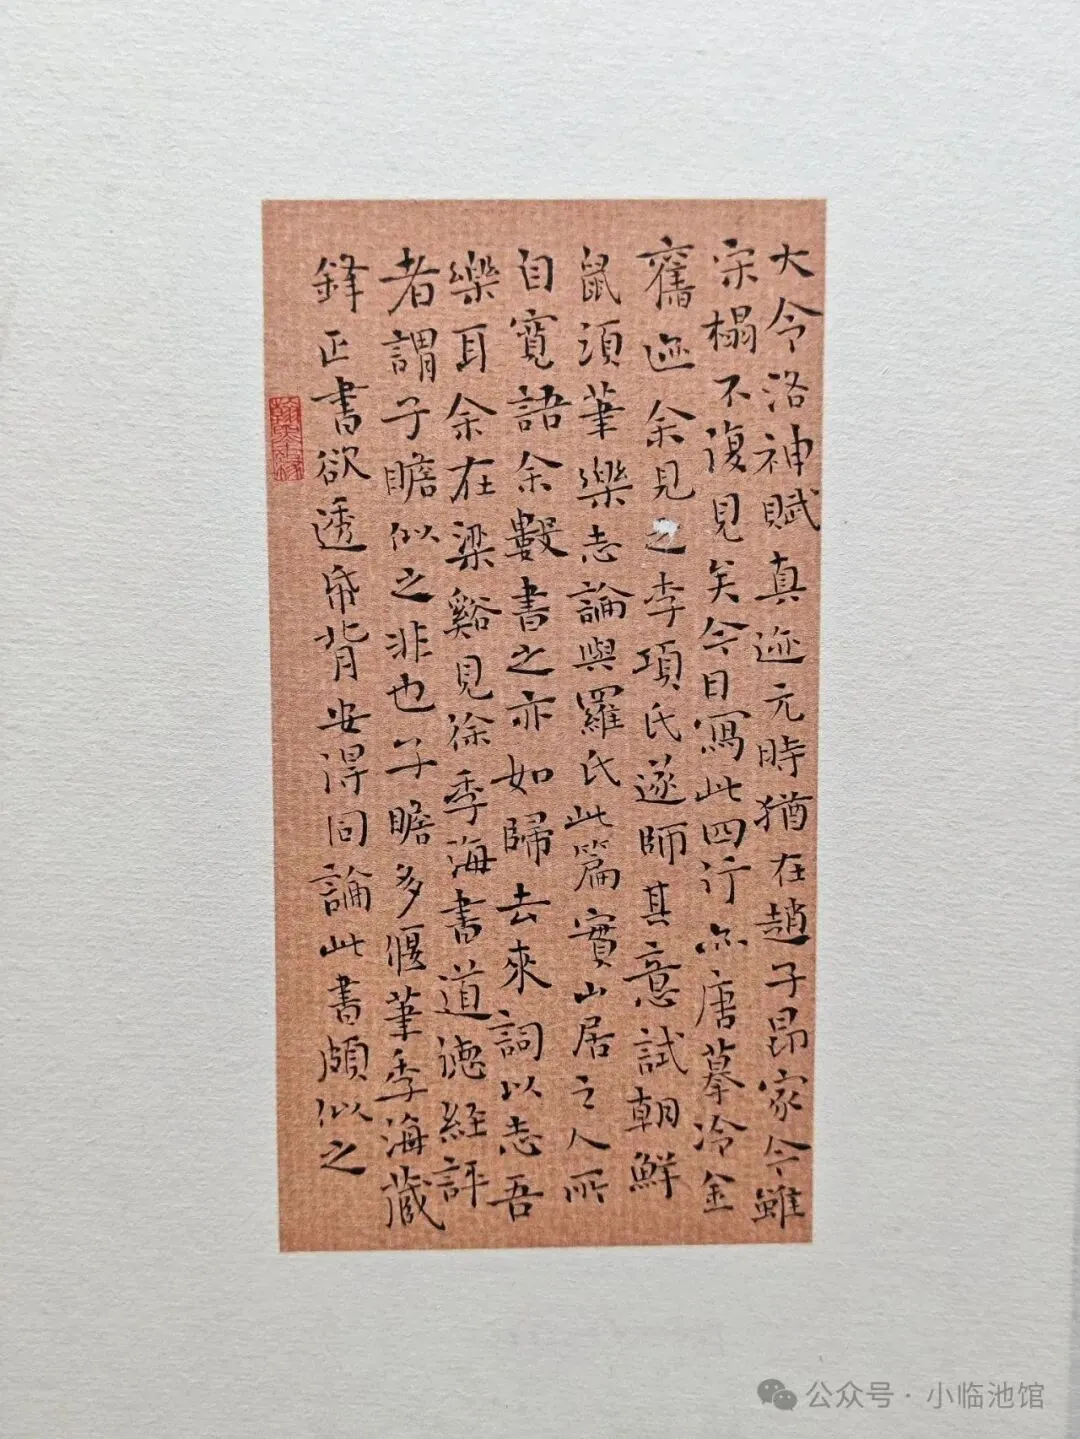 大令洛神賦真迹元時猶在趙子昂家今雖
宋榻不復見矣今日寫此四行亦唐摹冷金
舊迹余見之李項氏遂師其意試朝鮮
鼠須筆樂志論與羅氏此篇實山居之人所
自寬語余數書之亦如歸去來詞以志吾
樂耳余在梁谿見徐季海書道德経評
者謂子瞻似之非也子瞻多偃筆季海藏
鋒正書欲透帋背安得同論此書頗似之
公众号·小临池馆